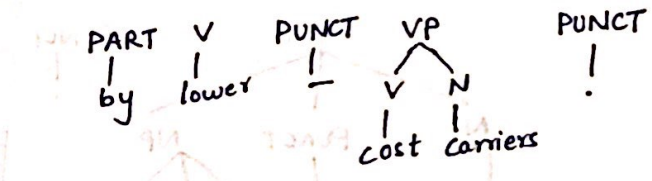 PART V PUNCT VP PUNCT
by lower - V N .
cost carriers